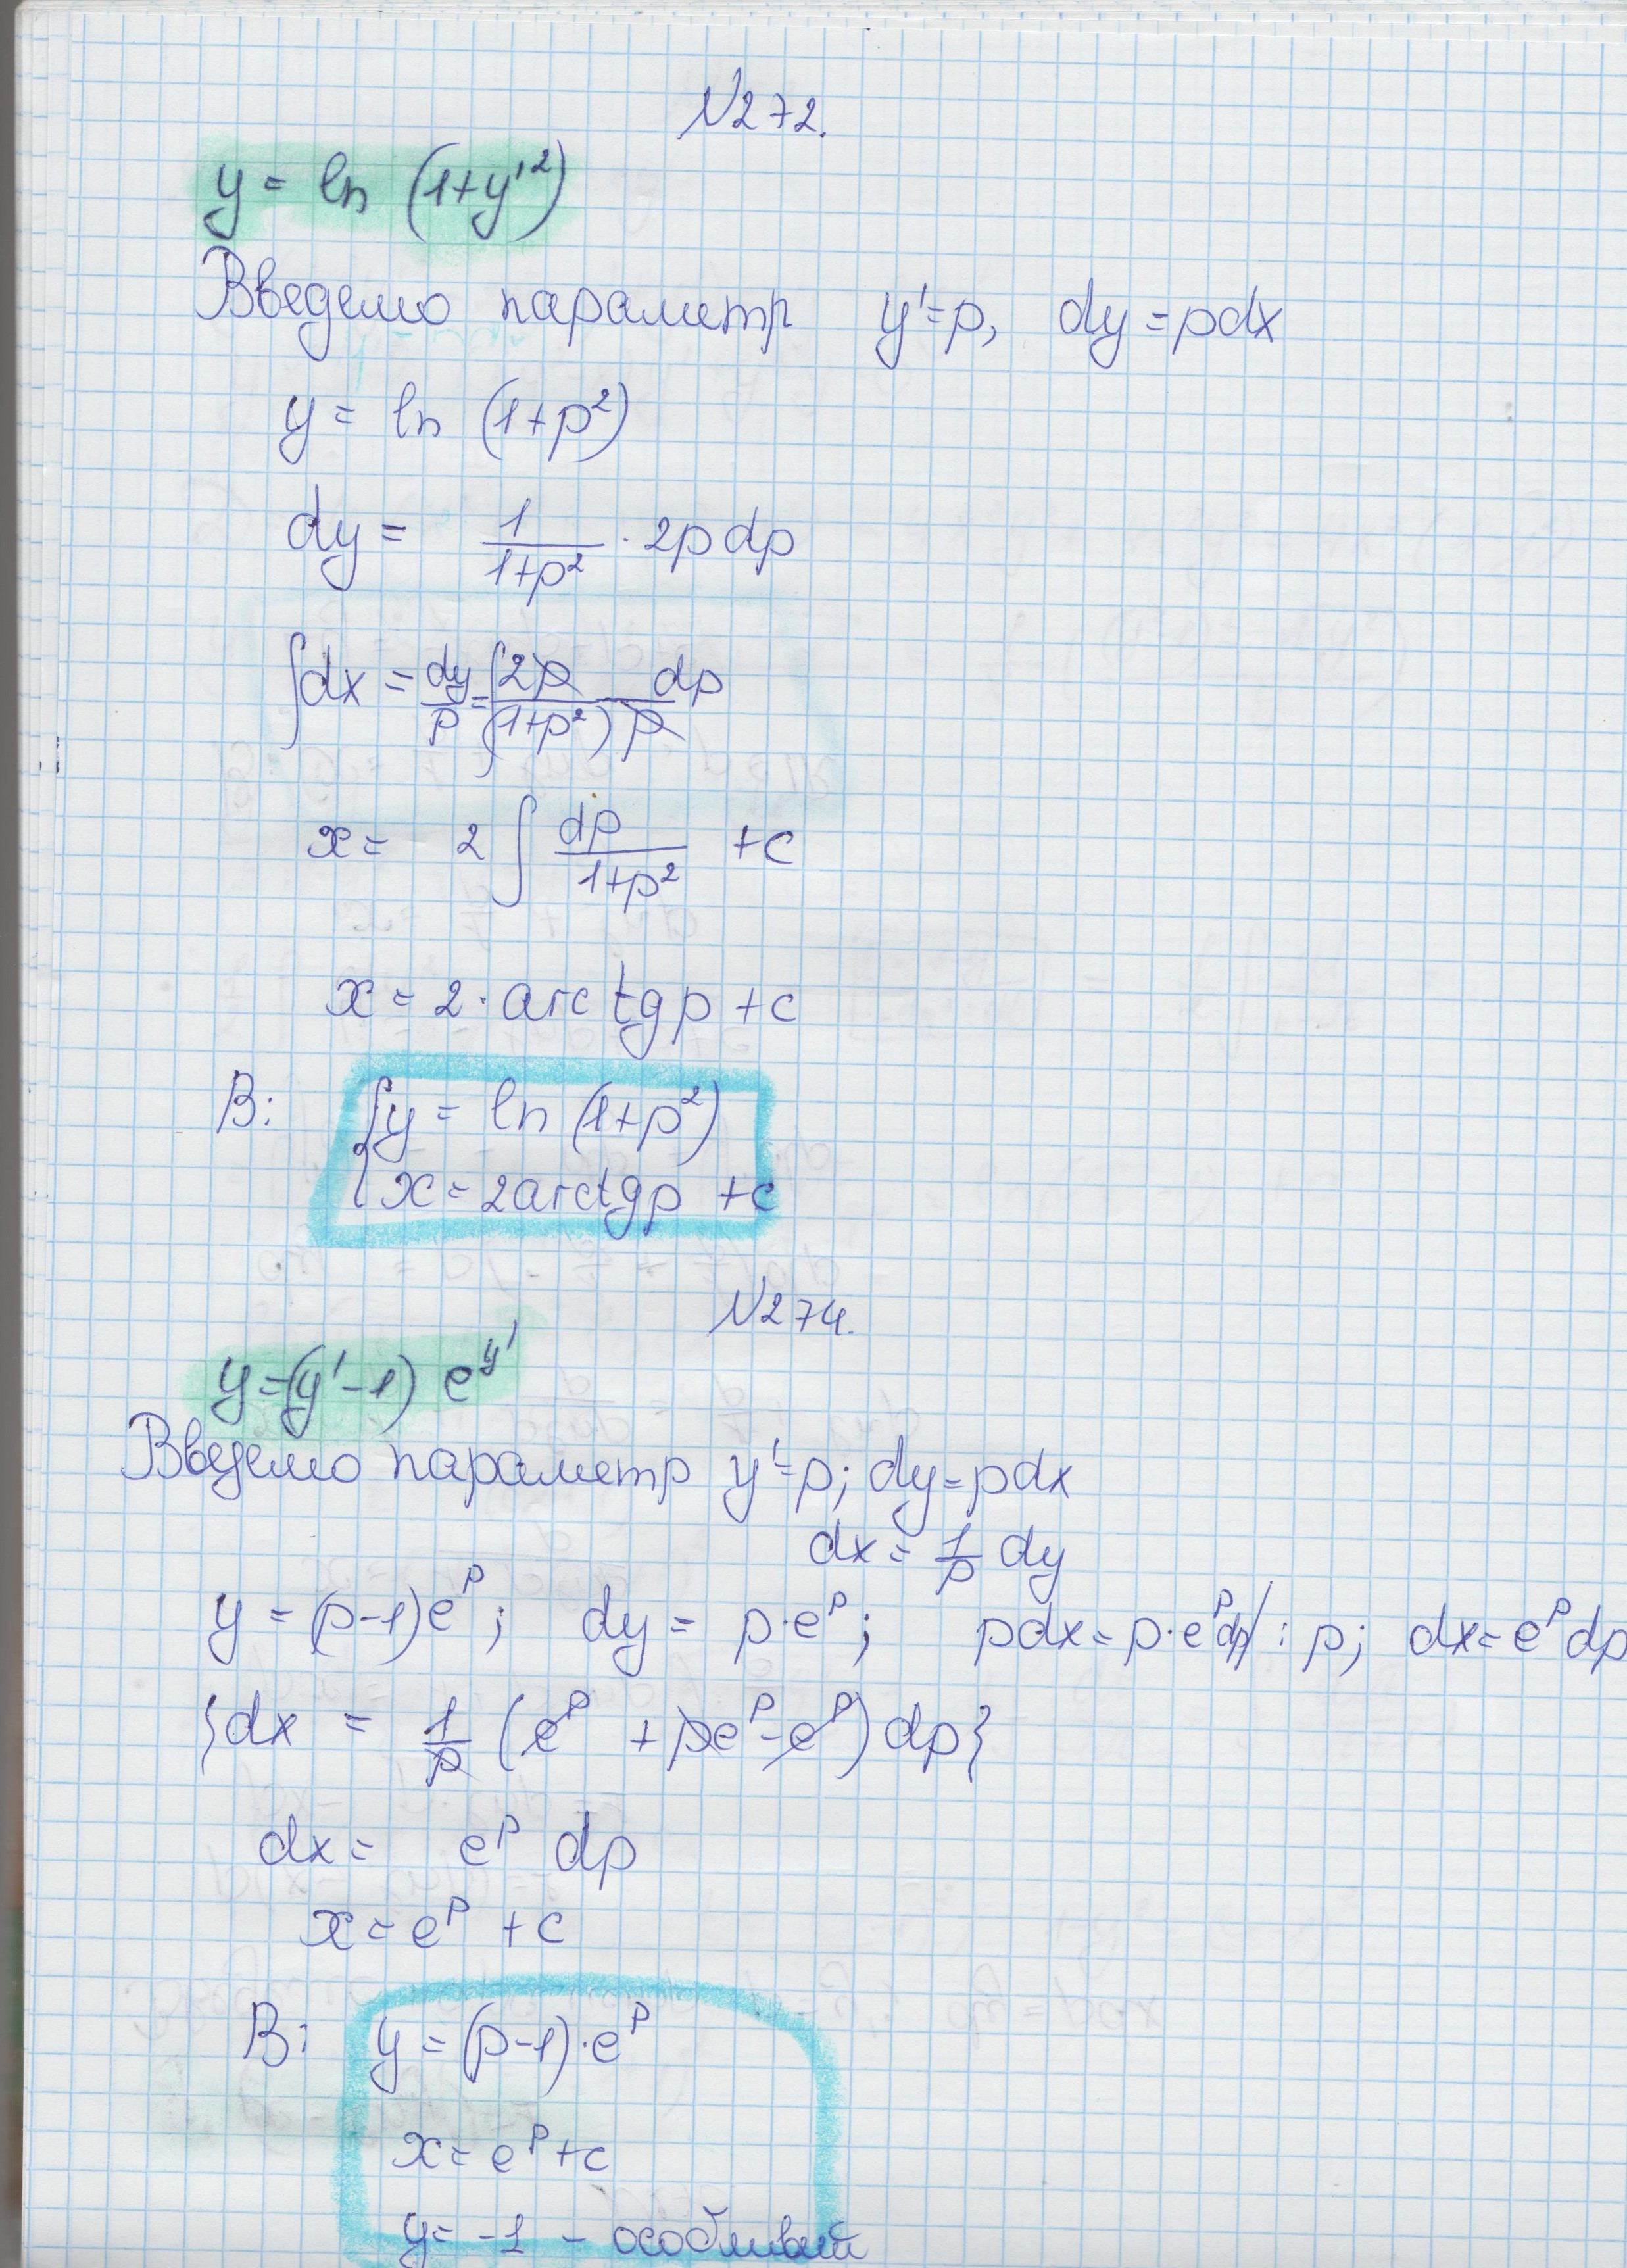 №272.
y = ln (1+y'²)
Введемо параметр y'=p, dy=pdx
y = ln (1+p²)
dy = 1/(1+p²) · 2p dp
∫dx = dy/p = ∫ 2p dp/((1+p²)p)
x = 2 ∫ dp/(1+p²) +c
x = 2 · arctg p + c
В: { y = ln (1+p²)
x = 2arctgp +c
№274.
y=(y'-1) e^y'
Введемо параметр y'=p; dy=pdx
dx = 1/p dy
y = (p-1)e^p; dy = p·e^p; pdx=p·e^p dp/ : p; dx=e^p dp
{dx = 1/p (e^p + pe^p - e^p) dp}
dx = e^p dp
x = e^p + c
В: y = (p-1)·e^p
x = e^p + c
y = -1 - особливий